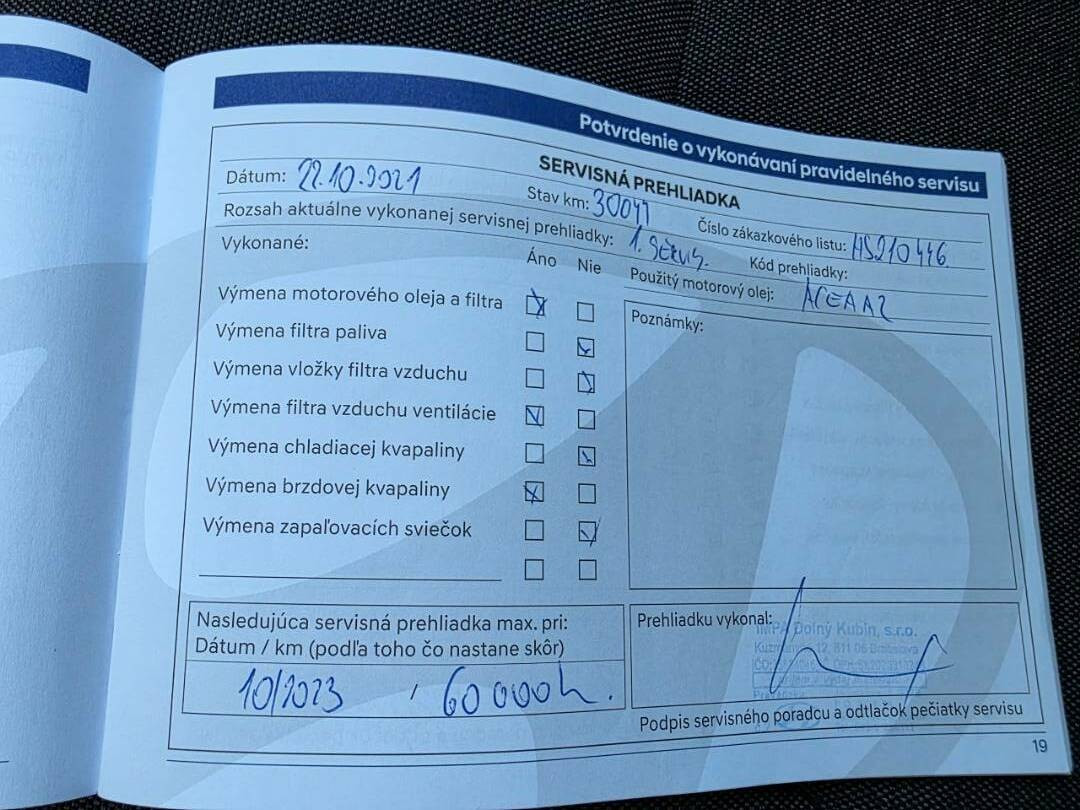 Potvrdenie o vykonávaní pravidelného servisu
SERVISNÁ PREHLIADKA
Dátum: 22.10.2021 Stav km: 30041 Číslo zákazkového listu: HS210446
Rozsah aktuálne vykonanej servisnej prehliadky: 1. SERVIS. Kód prehliadky:
Vykonané: Áno Nie Použitý motorový olej: ACEA A2
Výmena motorového oleja a filtra Poznámky:
Výmena filtra paliva
Výmena vložky filtra vzduchu
Výmena filtra vzduchu ventilácie
Výmena chladiacej kvapaliny
Výmena brzdovej kvapaliny
Výmena zapaľovacích sviečok
Nasledujúca servisná prehliadka max. pri:
Dátum / km (podľa toho čo nastane skôr)
10/2023 / 60 000
Prehliadku vykonal:
IMPA Dolný Kubín, s.r.o.
12, 811 06 Bratislava
Podpis servisného poradcu a odtlačok pečiatky servisu
19